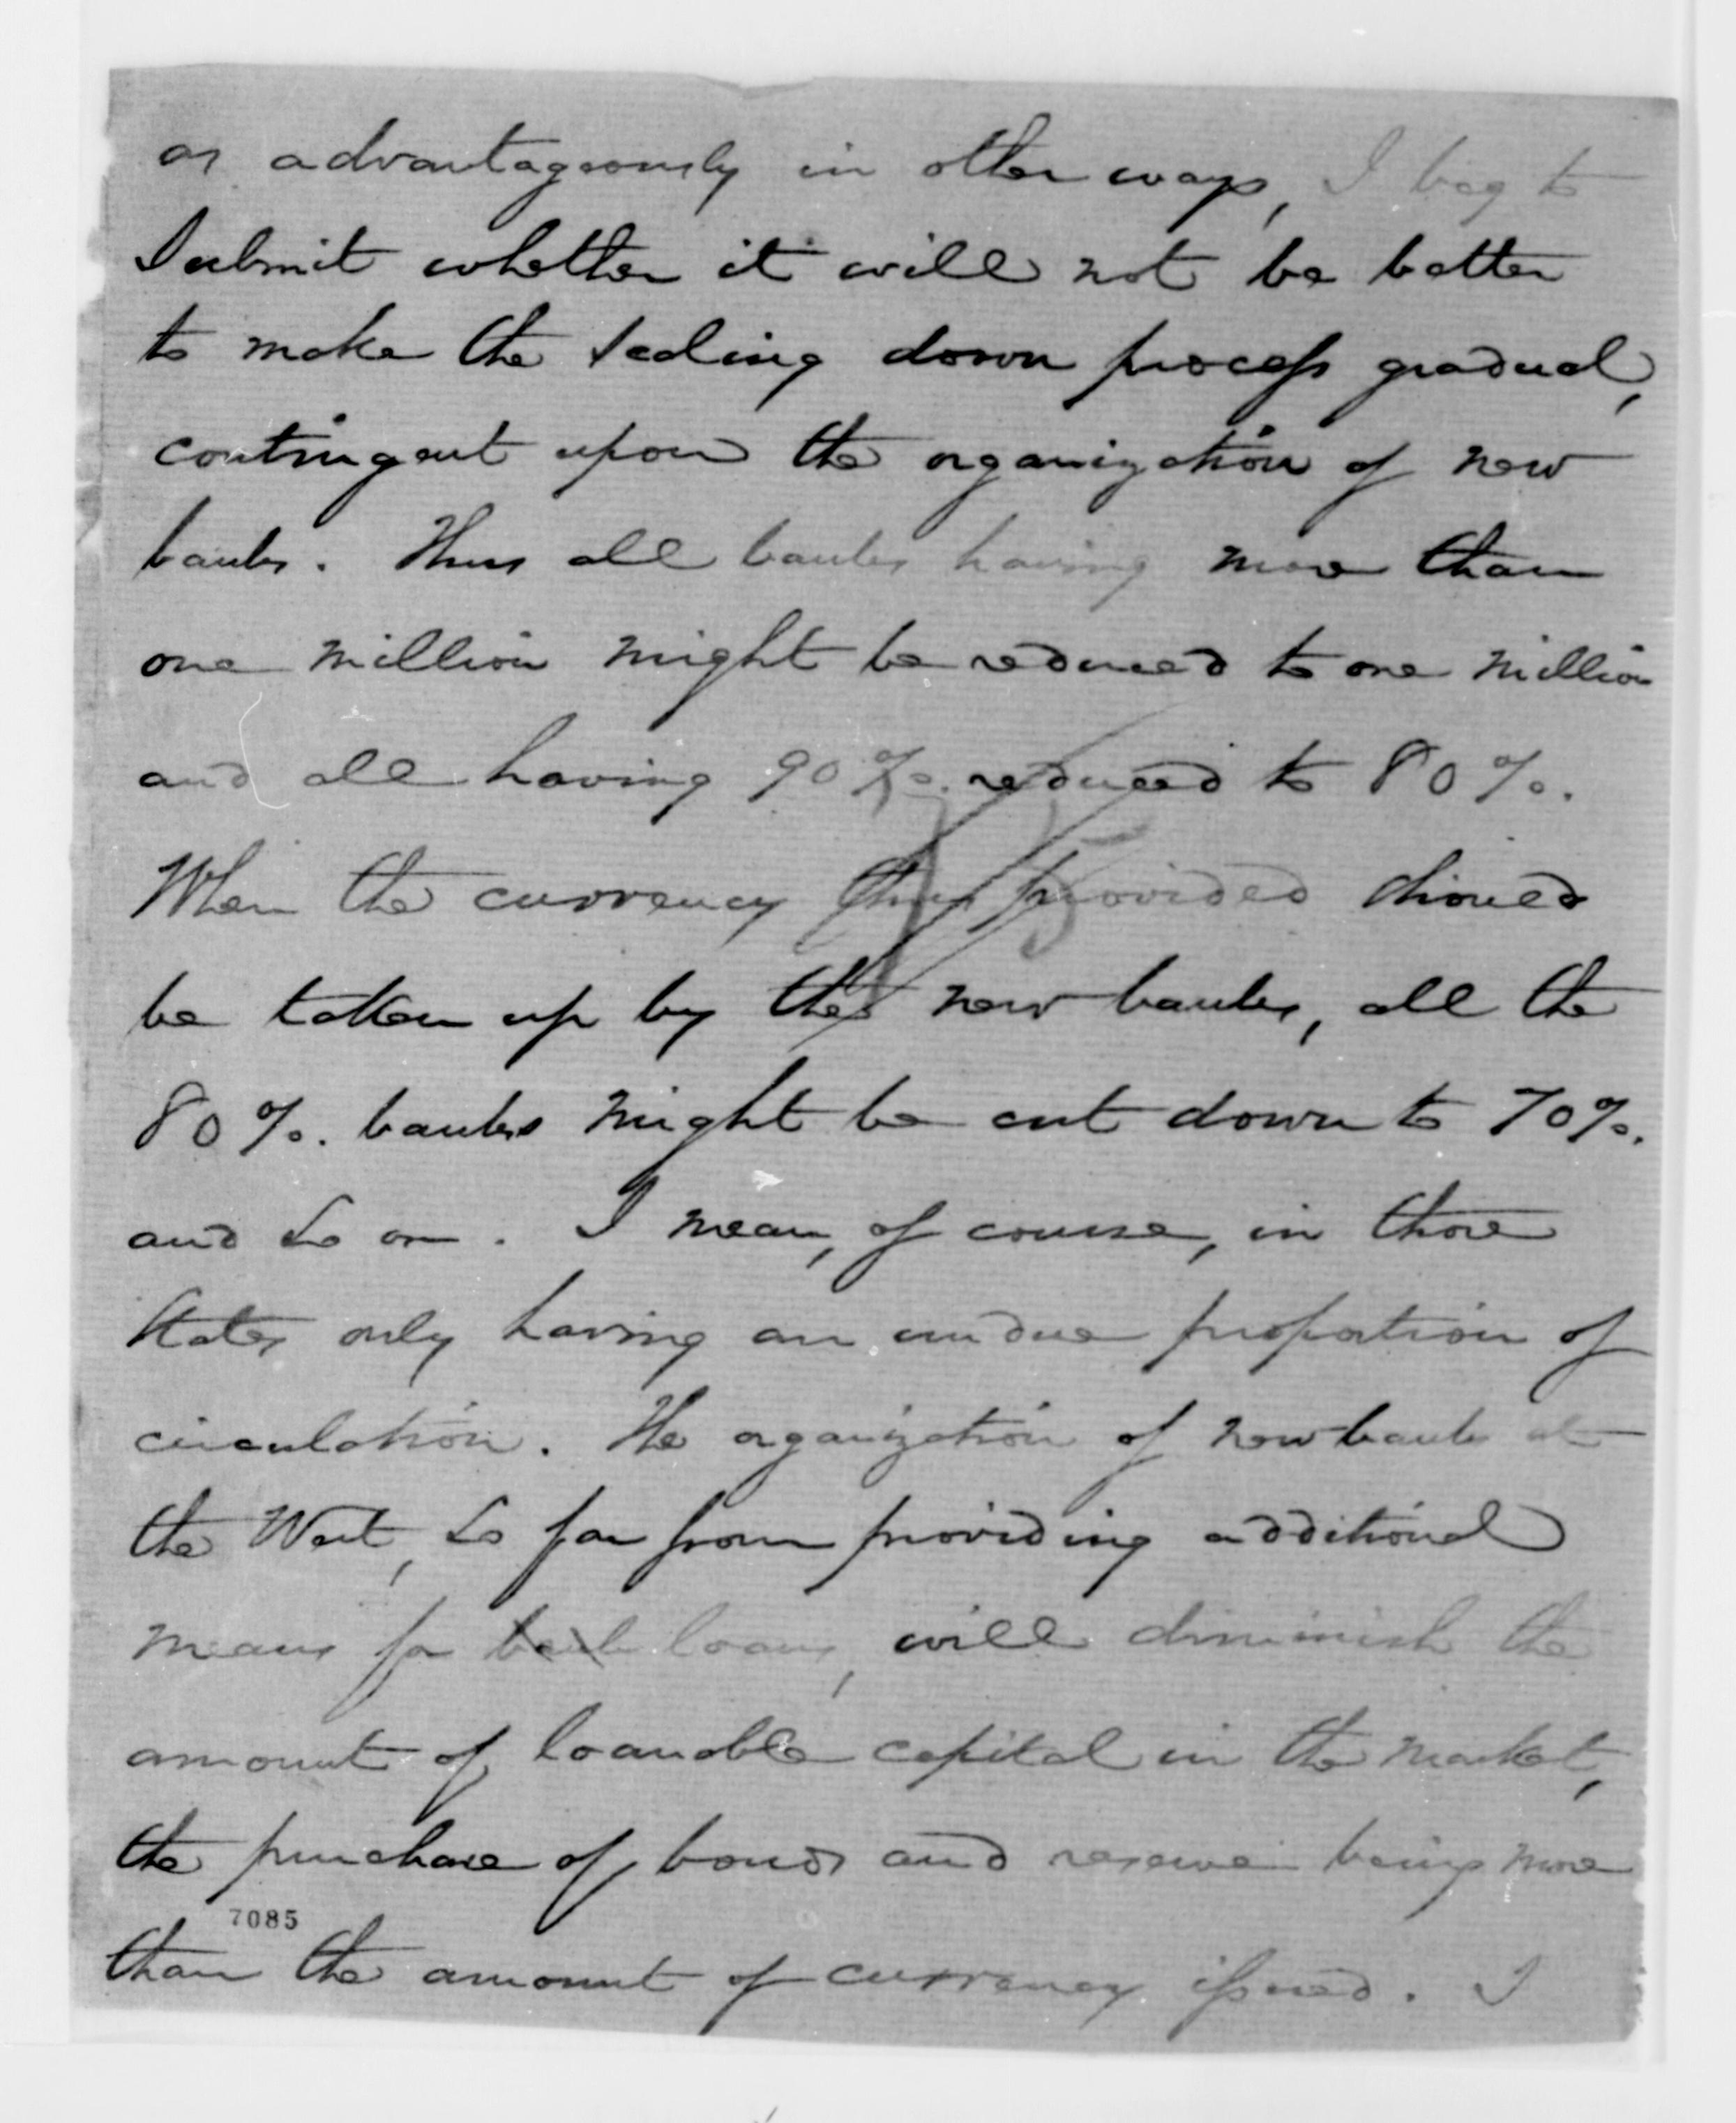 as advantageously in other ways, I beg to
submit whether it will not be better
to make the scaling down process gradual,
contingent upon the organization of new
banks. Thus all banks having more than
one million might be reduced to one million
and all having 90%. reduced to 80%.
When the currency thus provided should
be taken up by the new banks, all the
80%. banks might be cut down to 70%.
and so on. I mean, of course, in those
States only having an undue proportion of
circulation. The organization of new banks at
the West, so far from providing additional
means for bank loans, will diminish the
amount of loanable capital in the market,
the purchase of bonds and reserve being more
7085
than the amount of currency issued. I